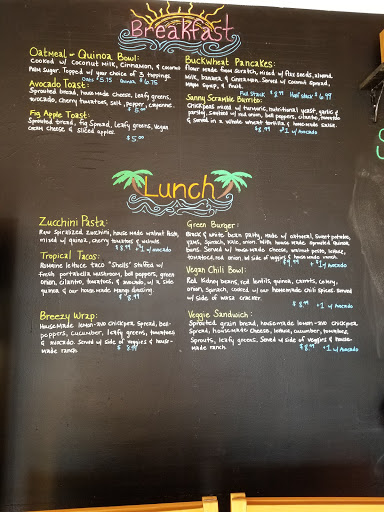 Breakfast
Oatmeal - Quinoa Bowl:
Cooked w/ coconut milk, cinnamon, & coconut
palm sugar. Topped w/ your choice of 3 toppings.
Oats $5.75 Quinoa $6.75
Avocado Toast:
Sprouted bread, housemade cheese, leafy greens,
avocado, cherry tomatoes, salt, pepper, cayenne.
Fig Apple Toast:
Sprouted bread, fig spread, leafy greens, vegan
cream cheese & sliced apples.
$5.00
Buckwheat Pancakes:
flour made from scratch, mixed w/ flax seeds, almond
milk, banana & cinnamon. Served w/ coconut spread,
maple syrup, & fruit.
Full Stack $8.99 Half stack $6.99
Sunny Scramble Burrito:
Chickpeas mixed w/ turmeric, nutritional yeast, garlic &
parsley, sautéed w/ red onion, bell peppers, cilantro, tomatoes
& Served in a whole wheat tortilla & housemade salsa.
$8.99 +$1 w/ Avocado
Lunch
Zucchini Pasta:
Raw spiralized zucchini, house made walnut pesto,
mixed w/ quinoa, cherry tomatoes & walnuts.
$8.99 +$1 w/ Avocado
Tropical Tacos:
Romaine lettuce taco "Shells" stuffed w/
fresh portabella mushroom, bell peppers, green
onion, cilantro, tomatoes, & avocado, w/ a side
quinoa & our housemade mango dressing.
$8.99
Breezy Wrap:
Housemade lemon-dijo chickpea spread, bell
peppers, cucumber, leafy greens, tomatoes
& avocado. Served w/ side of veggies & house-
made ranch. $8.99
Green Burger:
Black & white bean patty, made w/ oatmeal, sweet potato,
yams, spinach, kale, onion. With house made sprouted quinoa
buns. Served w/ housemade cheese, walnut pesto, lettuce,
tomatoes, red onion. w/ side of veggies & housemade ranch.
$9.99 +$1 w/ Avocado
Vegan Chili Bowl:
Red kidney beans, red lentils, quinoa, carrots, celery,
onion, spinach, cooked w/ our housemade chili spices. Served
w/ side of masa cracker.
$8.99 +$1 w/ Avocado
Veggie Sandwich:
Sprouted grain bread, housemade lemon-dijo chickpea
spread, housemade cheese, lettuce, cucumber, tomatoes,
sprouts, leafy greens. Served w/ side of veggies & house-
made ranch. $8.99 +$1 w/ Avocado